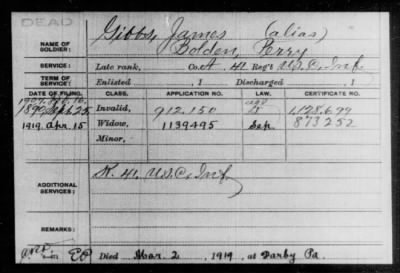 DEAD
Gibbs, James (alias)
NAME OF SOLDIER: Bolden, Perry
SERVICE: Late rank, Co. A 41 Reg't U.S.C. Inf.
TERM OF SERVICE: Enlisted , 1 Discharged , 1
DATE OF FILING. CLASS. APPLICATION NO. LAW. CERTIFICATE NO.
1907
1890 Sept 25 Invalid, 912.150 1,128.699
1919. Apr. 15 Widow, 1139495 Sep. 873252
Minor,
ADDITIONAL SERVICES: K. 41, U.S.C. Inf.
REMARKS:
Died Mar. 2, 1919, at Darby Pa.